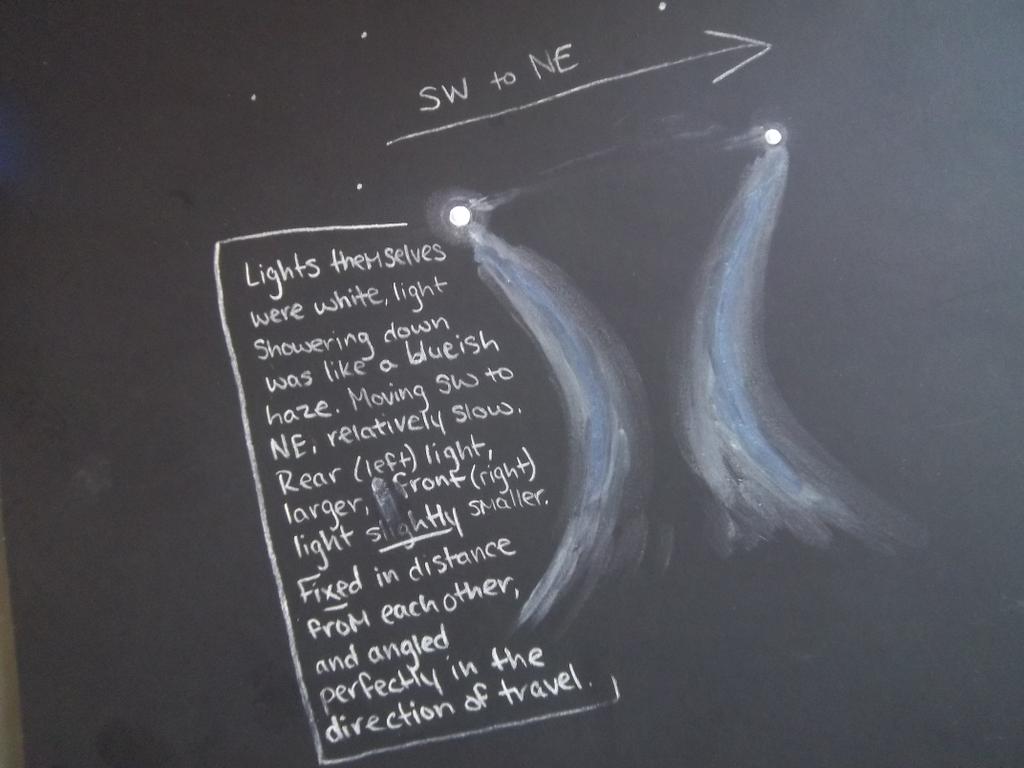 SW to NE
Lights themselves
were white, light
showering down
was like a blueish
haze. Moving SW to
NE, relatively slow.
Rear (left) light,
larger, front (right)
light slightly smaller.
Fixed in distance
from each other,
and angled
perfectly in the
direction of travel.